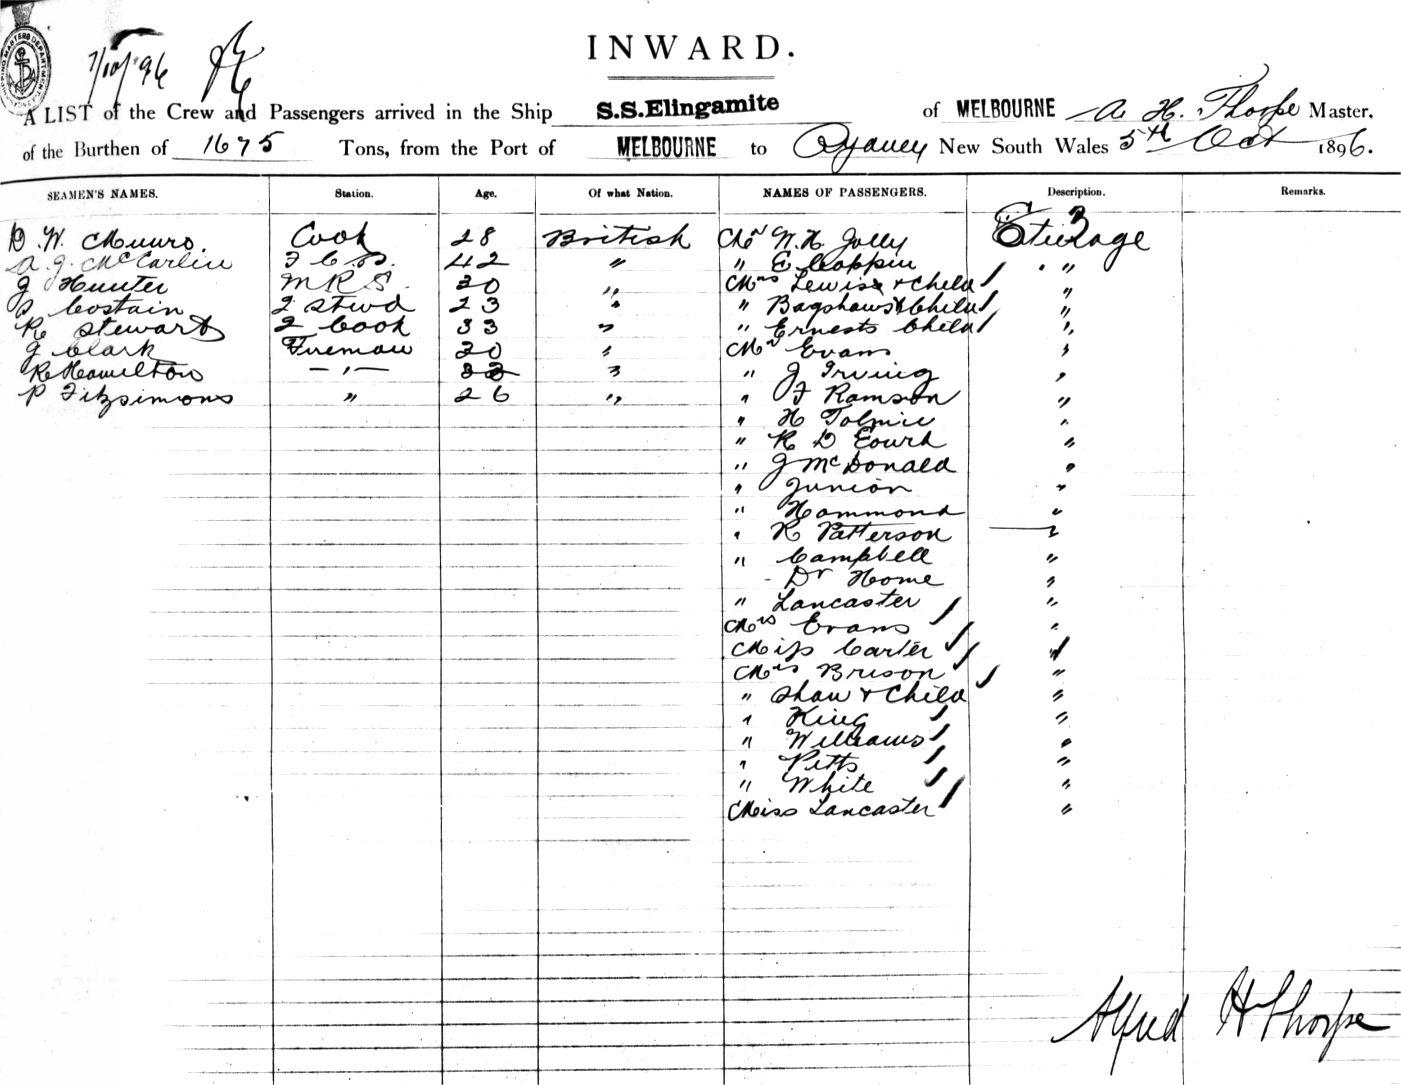 7/10/96
INWARD.
A LIST of the Crew and Passengers arrived in the Ship S.S.Elingamite of MELBOURNE A. H. Thorpe Master,
of the Burthen of 1675 Tons, from the Port of MELBOURNE to Sydney New South Wales 5th Oct 1896.
SEAMEN'S NAMES. Station. Age. Of what Nation. NAMES OF PASSENGERS. Description. Remarks.
D. W. Munro. Cook 28 British Mr W. H Jolly Steerage
A J McCarlin F C S. 42 " " E Coppin "
J Hunter M R S. 30 " Mrs Lewis & Child "
S Costain 2 Stwd 23 " " Bagshaw & Child "
R Stewart 2 Cook 33 " " Ernest & Child "
J Clark Fireman 30 " Mr Evans "
R Hamilton — " — 32 " " J Irving "
P Fitzsimons " 26 " " F Ramson "
" H Tolmie "
" R D "
" J McDonald "
" Junion "
" Hammond "
" R Patterson "
" Campbell "
- Dr Home "
" Lancaster "
Mrs Evans "
Miss Carter "
Mrs Brison "
" Shaw & Child "
" King "
" Williams "
" Pitts "
" White "
Miss Lancaster "
Alfred H Thorpe